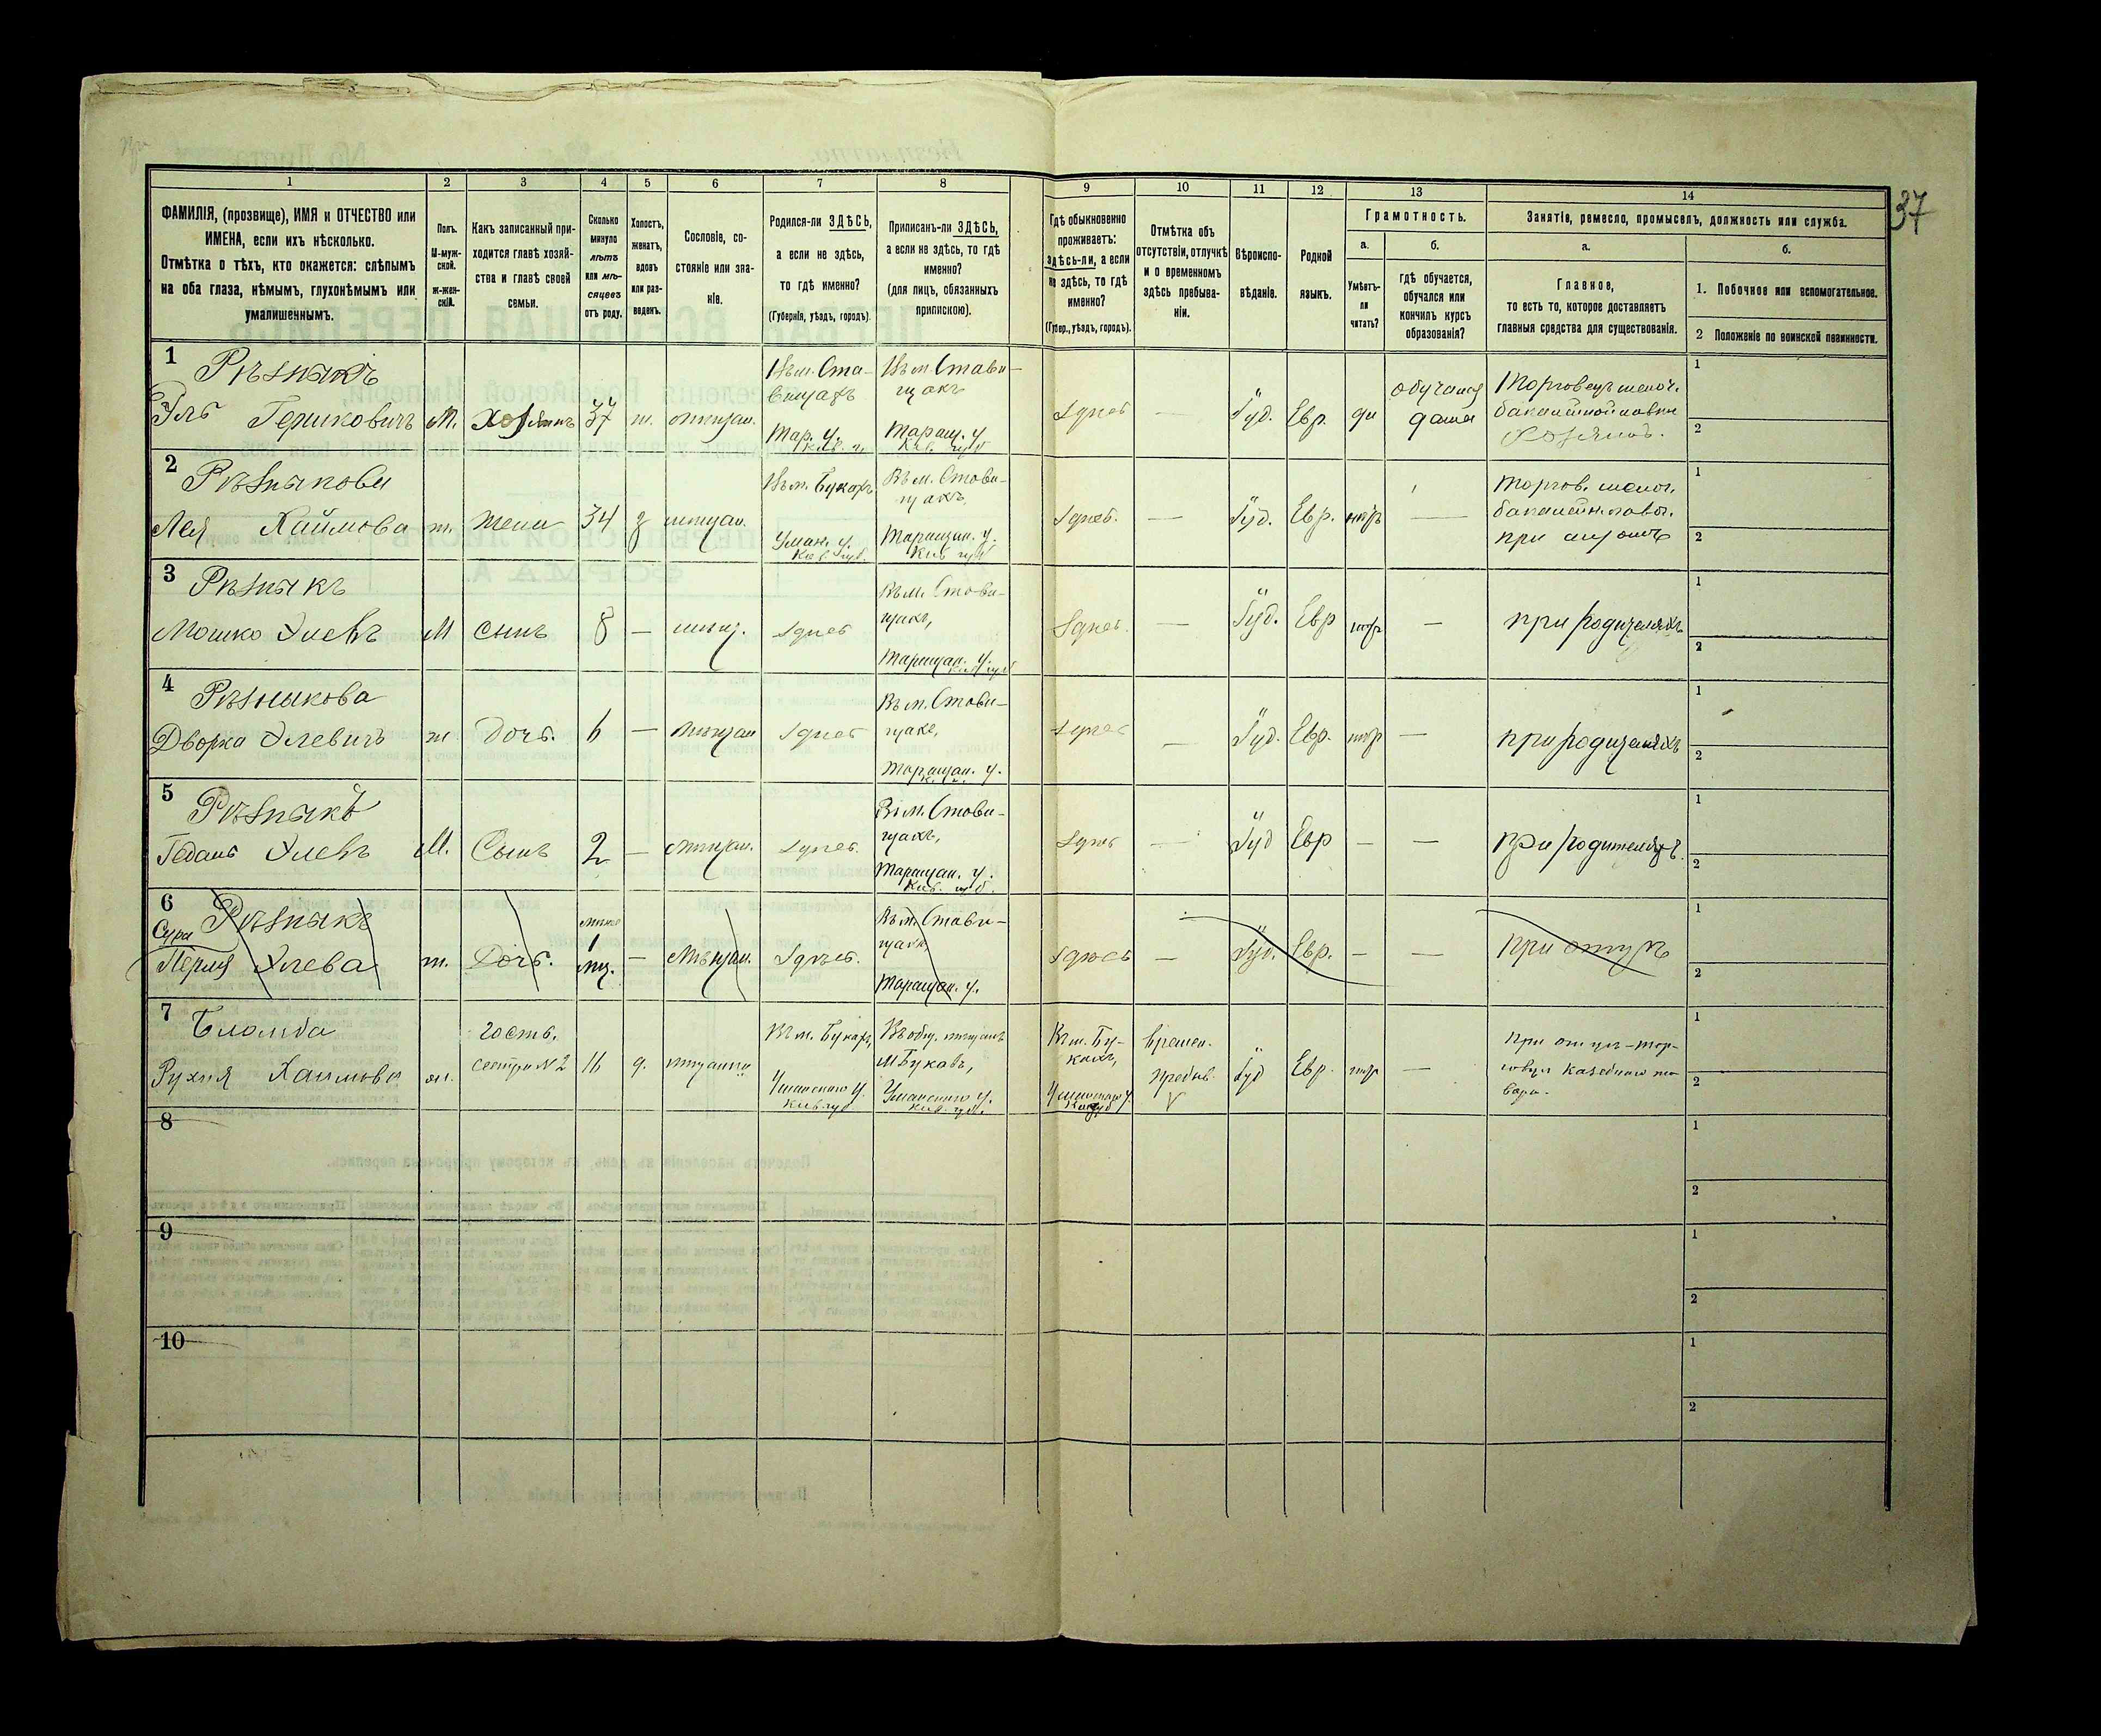 37
1
2
3
4
5
6
7
8
9
10
11
12
13
14
ФАМИЛІЯ, (прозвище), ИМЯ и ОТЧЕСТВО или
ИМЕНА, если ихъ нѣсколько.
Отмѣтка о тѣхъ, кто окажется: слѣпымъ
на оба глаза, нѣмымъ, глухонѣмымъ или
умалишеннымъ.
Полъ.
М-муж-
ской.
ж-жен-
скій.
Какъ записанный при-
ходится главѣ хозяй-
ства и главѣ своей
семьи.
Сколько
минуло
лѣтъ
или мѣ-
сяцевъ
отъ роду.
Холостъ,
женатъ,
вдовъ
или раз-
веденъ.
Сословіе, со-
стояніе или зва-
ніе.
Родился-ли ЗДѢСЬ,
а если не здѣсь,
то гдѣ именно?
(Губернія, уѣздъ, городъ).
Приписанъ-ли ЗДѢСЬ,
а если не здѣсь, то гдѣ
именно?
(для лицъ, обязанныхъ
припискою).
Гдѣ обыкновенно
проживаетъ:
здѣсь-ли, а если
не здѣсь, то гдѣ
именно?
(Губер., уѣздъ, городъ).
Отмѣтка объ
отсутствіи, отлучкѣ
и о временномъ
здѣсь пребыва-
ніи.
Вѣроиспо-
вѣданіе.
Родной
языкъ.
Грамотность.
а.
Умѣетъ-
ли
читать?
б.
гдѣ обучается,
обучался или
кончилъ курсъ
образованія?
Занятіе, ремесло, промыселъ, должность или служба.
а.
Главное,
то есть то, которое доставляетъ
главныя средства для существованія.
б.
1. Побочное или вспомогательное.
2 Положеніе по воинской повинности.
1
Рѣзникъ
Эль Гершковичъ
М.
Хозяинъ
37
ж.
мѣщан.
Въ м. Ста-
вищахъ
Тар. у.
Кіев. г.
Въ м. Стави-
щахъ
Таращ. у
Кіев. губ
здѣсь
—
Іуд.
Евр.
да
обучался
дома
Торговецъ мелоч.
бакалейной лавки
хозяинъ.
1
2
2
Рѣзникова
Лея Хаимова
ж.
жена
34
з
мѣщан.
Въ м. Букахъ
Уман. у.
Кіев губ.
Въ м. Стави-
щахъ
Таращан. у.
Кіев губ
здѣсь.
—
Іуд.
Евр.
нѣтъ
—
Торгов. мелоч.
бакалейн. лавк.
при мужѣ
1
2
3
Рѣзникъ
Мошко Элевъ
М
сынъ
8
—
мѣщ.
здѣсь
Въ м. Стави-
щахъ,
Таращан. у.
Кіев губ
здѣсь.
—
Іуд.
Евр
нѣтъ
—
при родителяхъ
1
2
4
Рѣзникова
Дворка Элевичъ
ж
дочь.
6
—
мѣщан
здѣсь
Въ м. Стави-
щахъ,
Таращан. у.
здѣсь
—
Іуд.
Евр.
нѣтъ
—
при родителяхъ
1
2
5
Рѣзникъ
Элевъ
М.
Сынъ
2
—
мѣщан.
здѣсь.
Въ м. Стави-
щахъ,
Таращан. у.
Кіев. губ.
здѣсь
—
Іуд
Евр
—
—
при родителяхъ.
1
2
6
Рѣзникъ
Сура
Перля Элева
ж.
Дочь.
1
мц.
—
Мѣщан.
здѣсь.
Въ м. Стави-
щахъ
Таращан. у.
здѣсь
—
Іуд.
Евр.
—
—
при отцѣ
1
2
7
Рухля Хаимова
ж.
гость.
сестра № 2
16
д.
мѣщанка
Въ м. Букахъ,
Уманскаго у.
Кіев. губ
Въ общ. мѣщанъ
м Букахъ,
Уманскаго у.
Кіев. губ.
Въ м. Бу-
кахъ,
Уманскаго у.
времен.
пребыв.
V
Іуд
Евр.
нѣтъ
—
при отцѣ - тор-
говцѣ то-
вара.
1
2
8
1
2
9
1
2
10
1
2